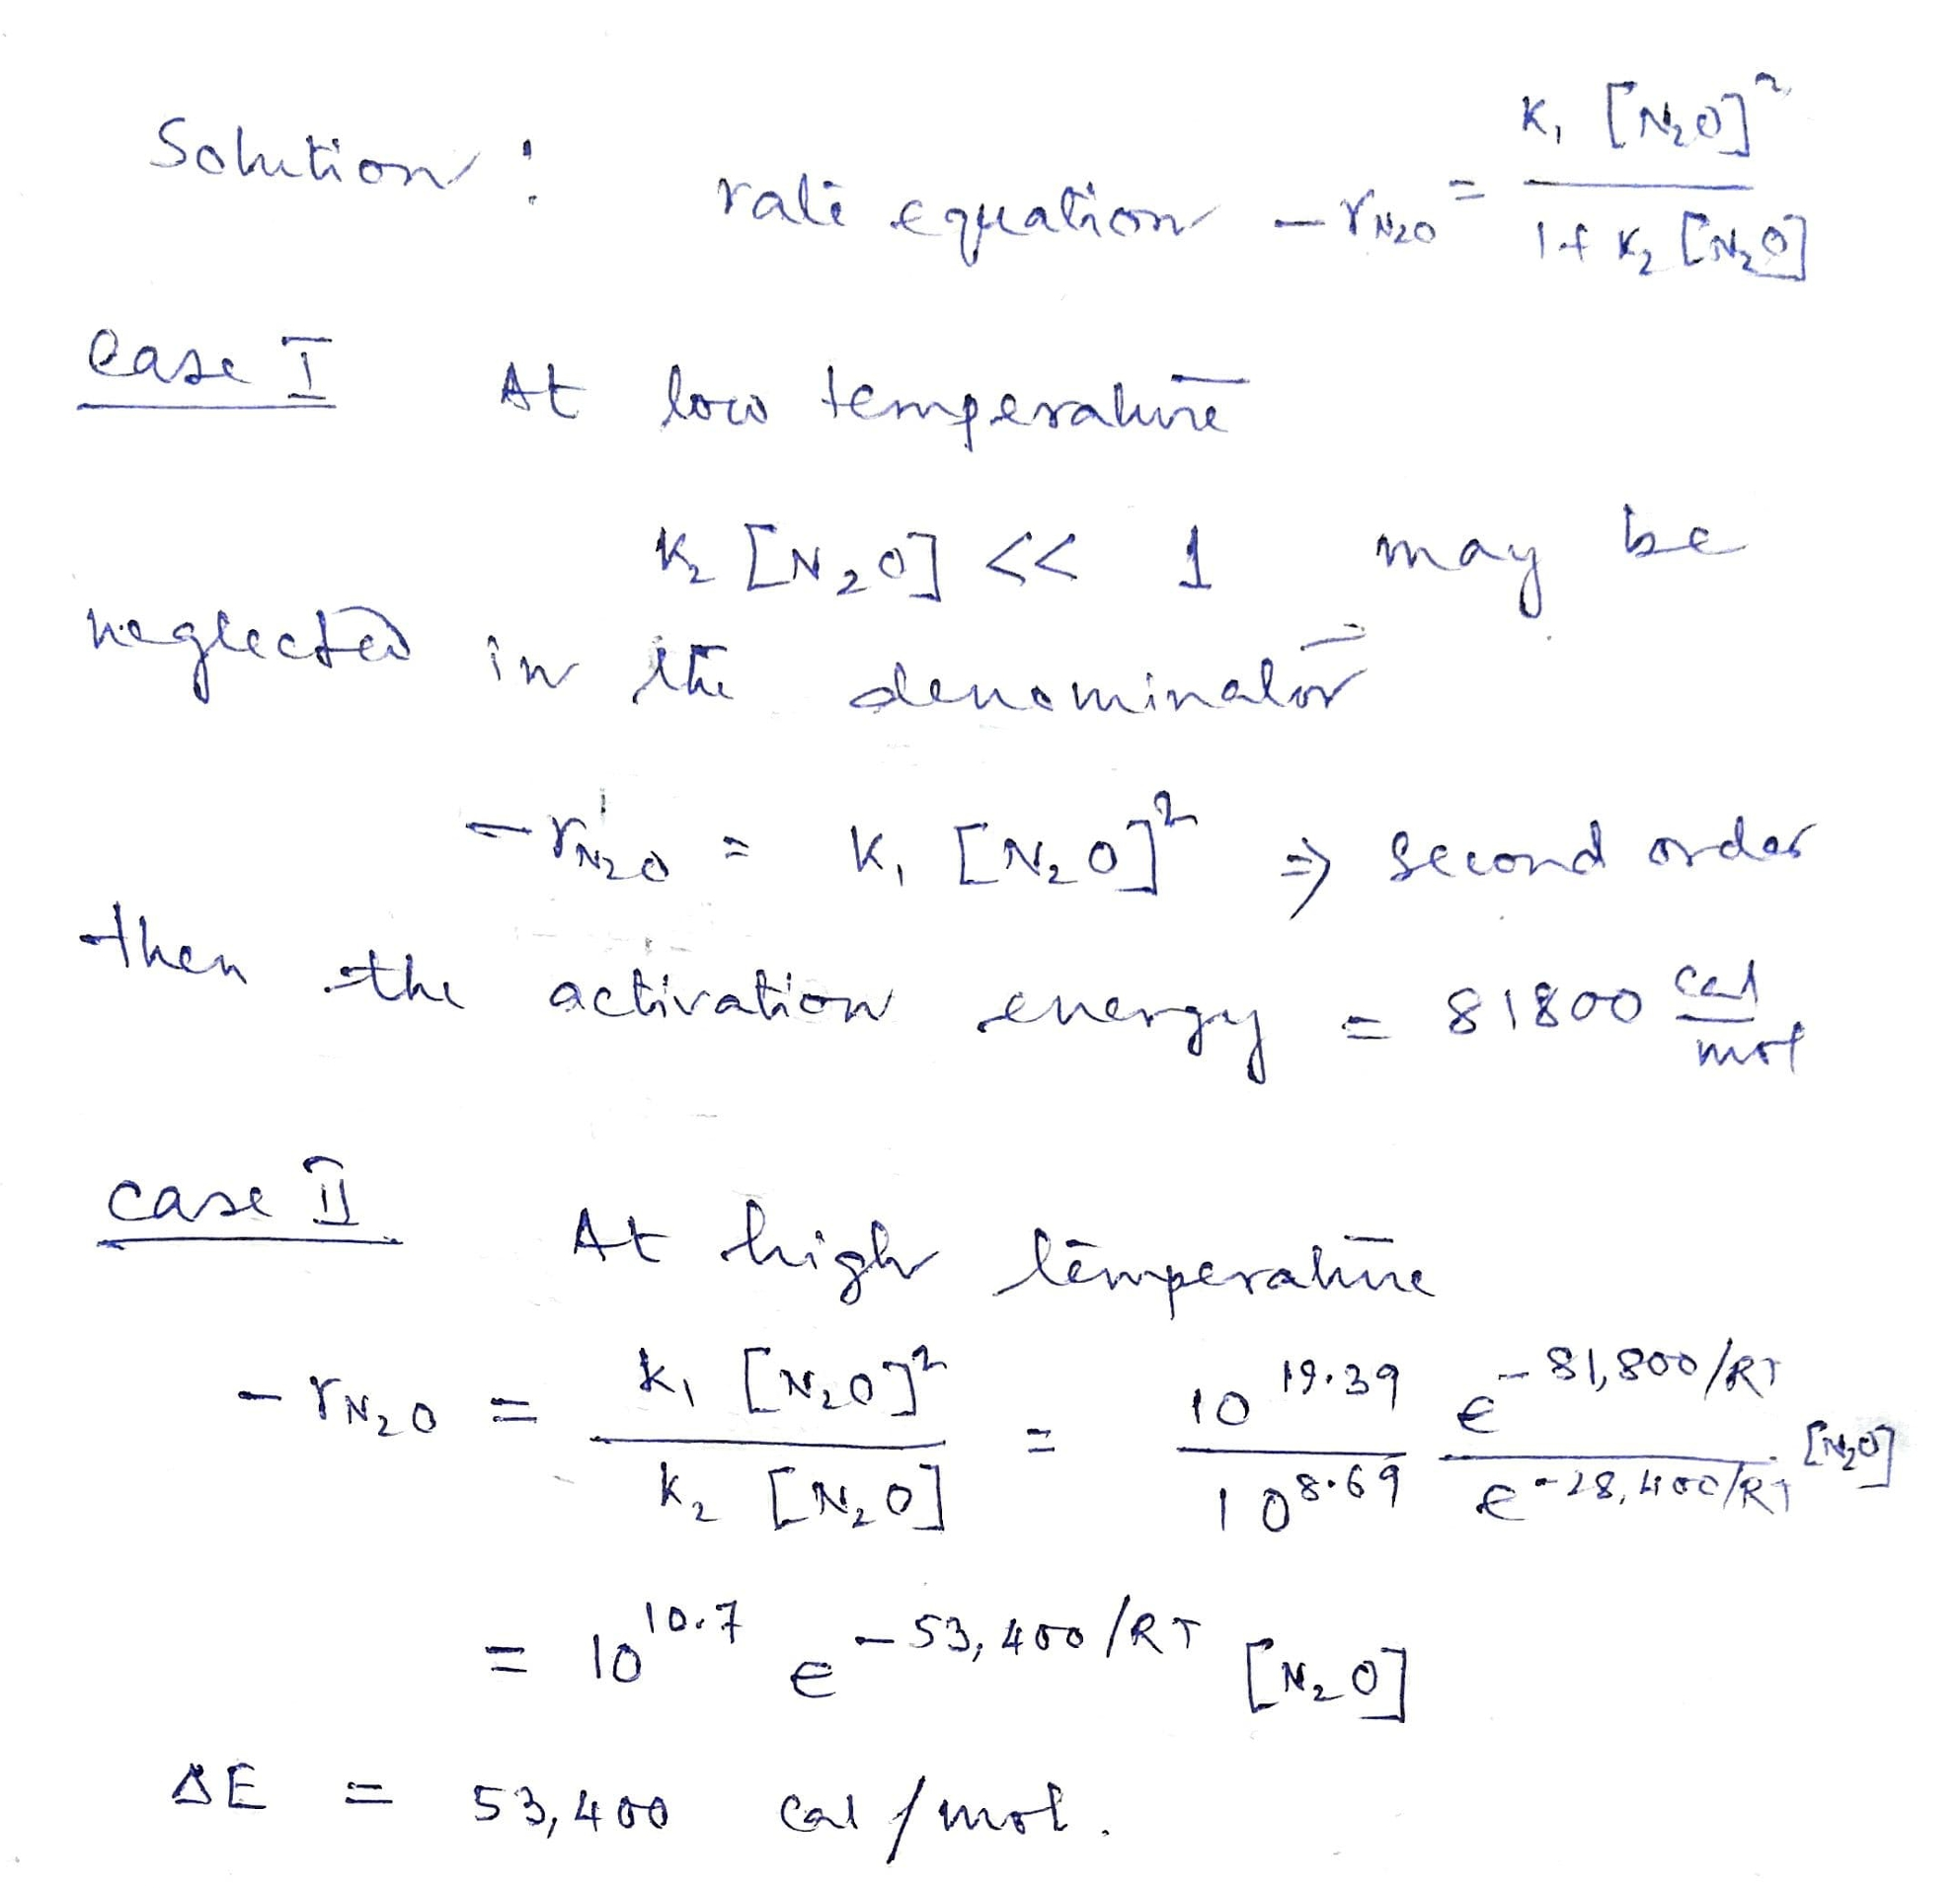 Solution : rate equation -r_N2O = K1 [N2O]^2 / 1 + K2 [N2O]
Case I At low temperature
K2 [N2O] << 1 may be
neglected in the denominator
-r_N2O = K1 [N2O]^2 ⇒ Second order
then the activation energy = 81800 cal/mol
case II At high temperature
-r_N2O = k1 [N2O]^2 / k2 [N2O] = 10^19.39 / 10^8.69 e^-81,800/RT / e^-28,400/RT . [N2O]
= 10^10.7 e^-53,400/RT [N2O]
ΔE = 53,400 cal/mol.